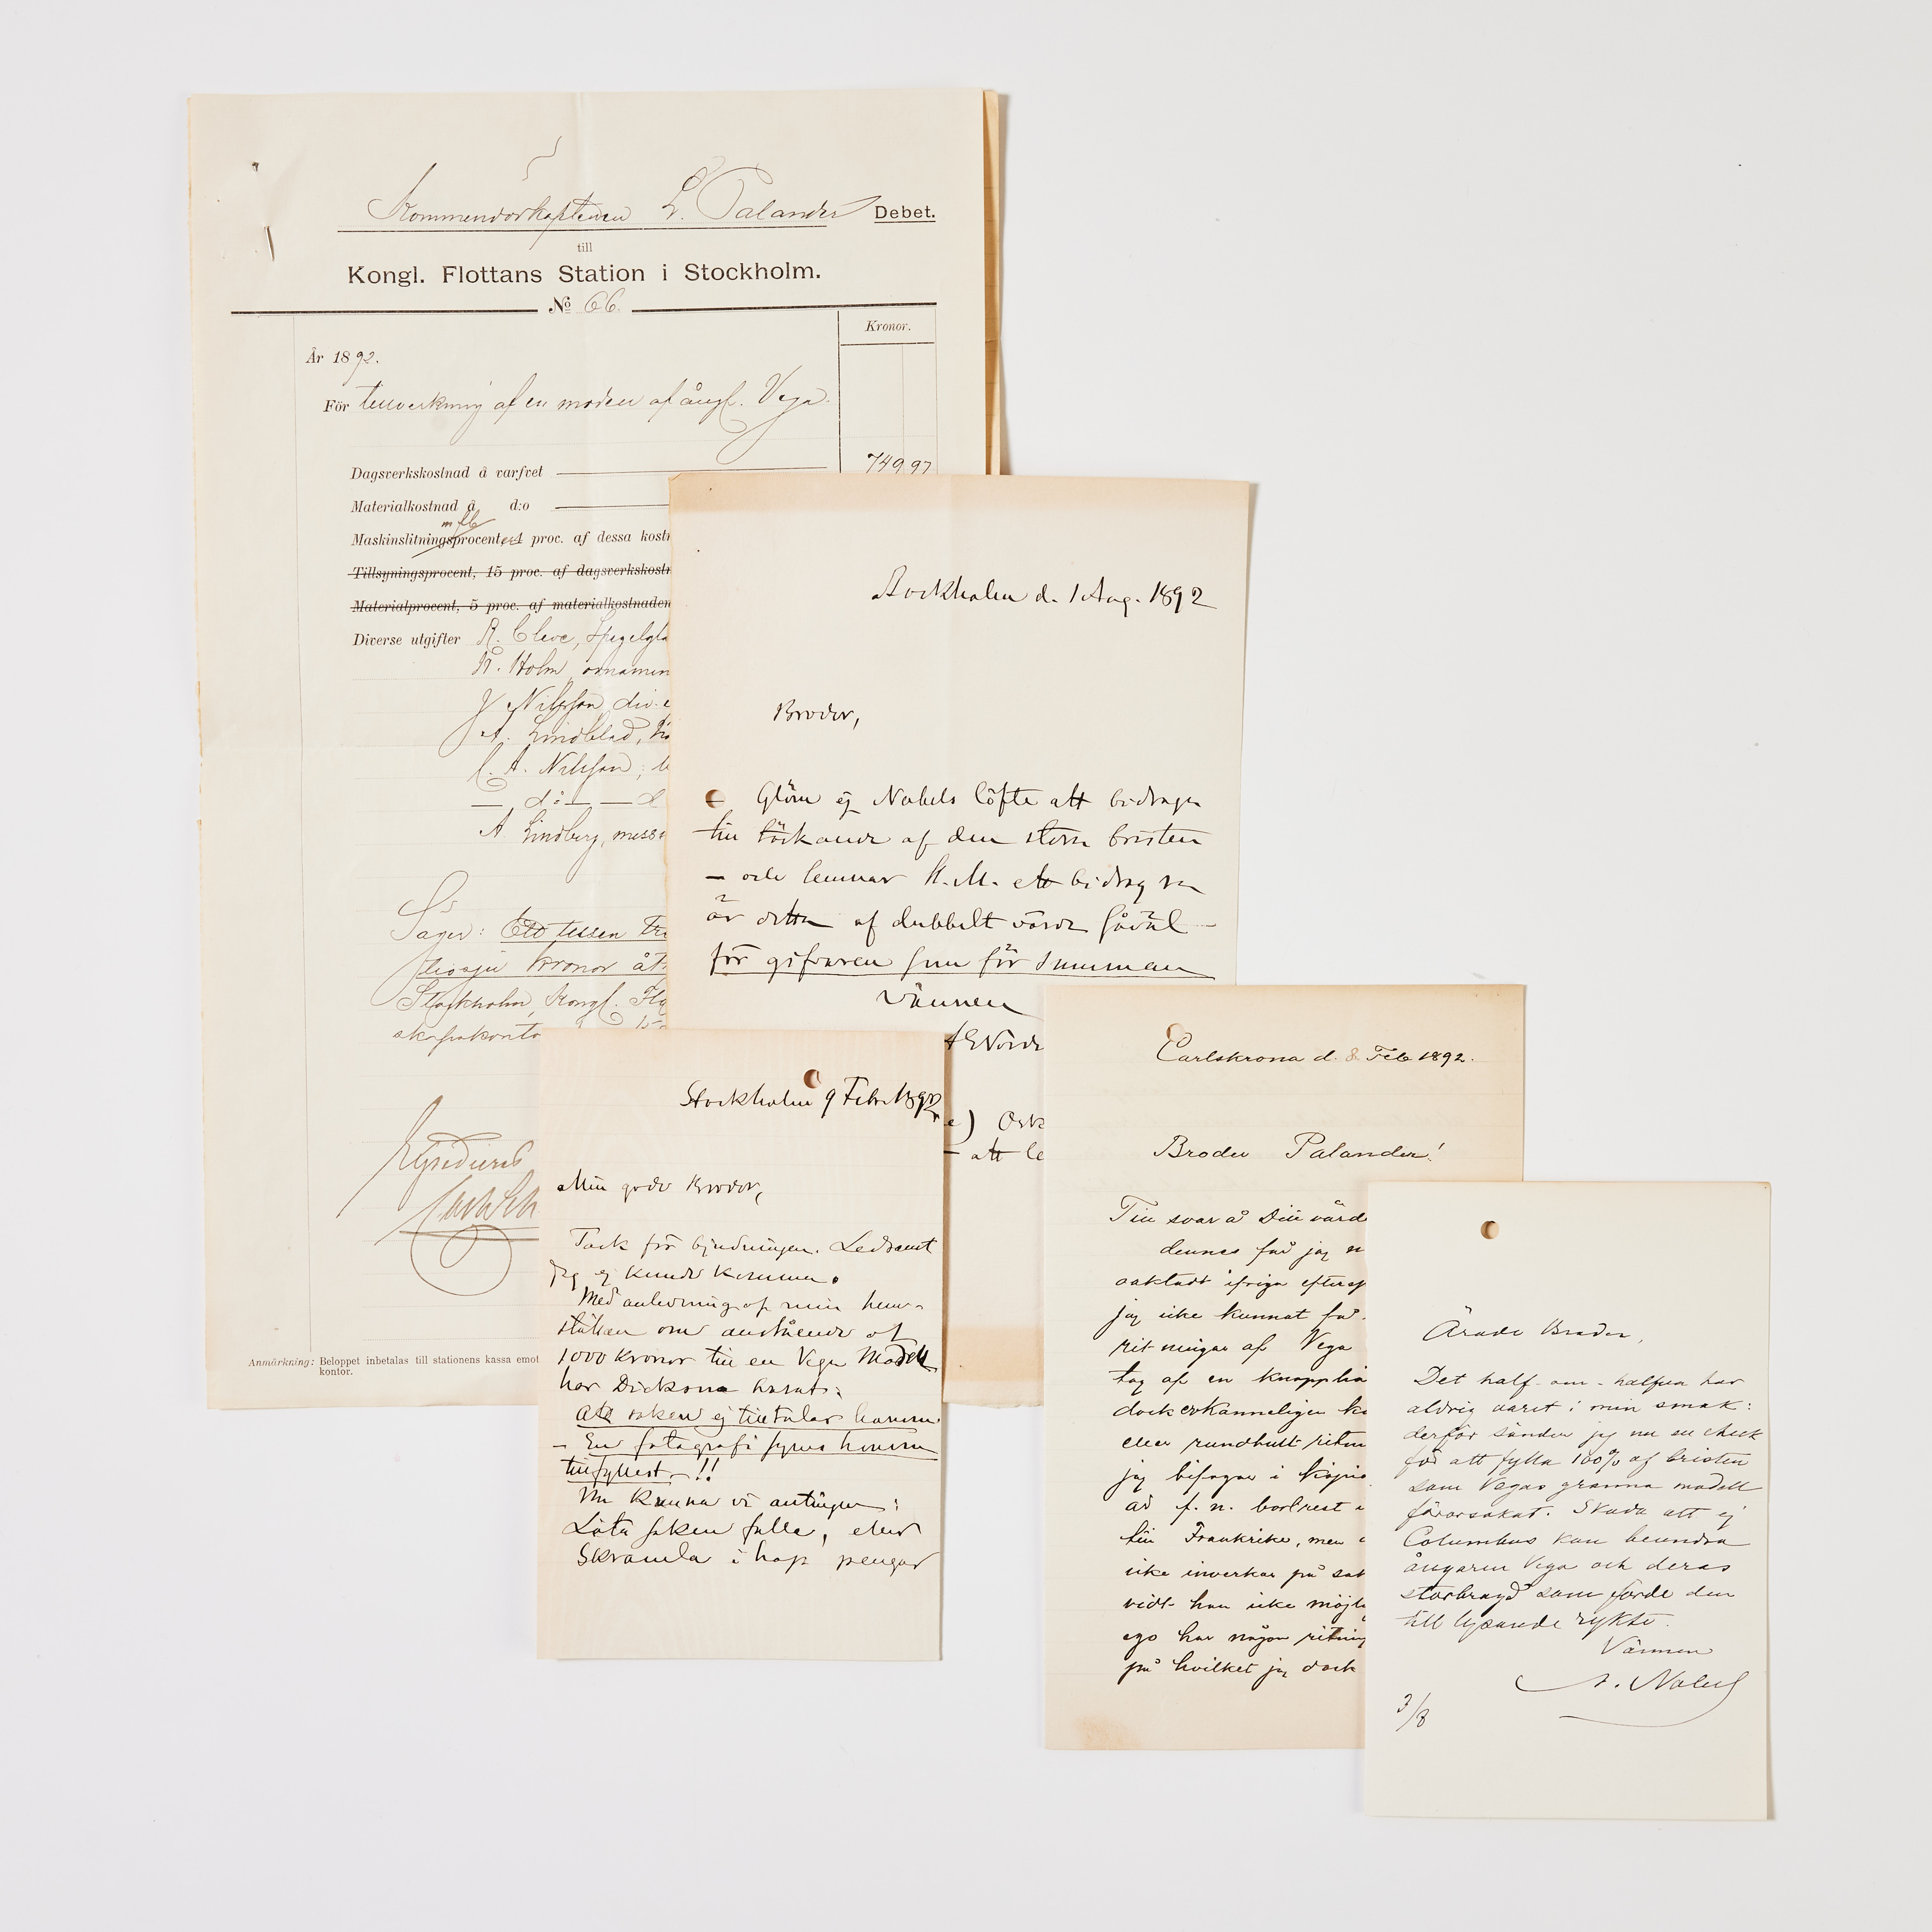 Kommendörkaptenen L. Palander Debet.
till
Kongl. Flottans Station i Stockholm.
No 66.
Kronor.
År 1892.
För tillverkning af en modell af ångf. Vega.
Dagsverkskostnad å varfvet 749 97
Materialkostnad å d:o
Maskinslitningsprocent, 4 proc. af dessa kostn
Tillsyningsprocent, 15 proc. af dagsverkskostn
Materialprocent, 5 proc. af materialkostnaden
Diverse utgifter R. Cleve, Spegelgla
Holm, ornamen
Nilsson, div.
A. Lindblad,
C. A. Nilsson,
d:o
A. Lindberg, mess
Säger: Ett tusen tre
tiosju kronor åt
Stockholm, Kongl. Flo
Anmärkning: Beloppet inbetalas till stationens kassa emot
kontor.
Stockholm d. 1 Aug. 1892
Broder,
Glöm ej Nobels löfte att bidraga
till täckande af den stora bristen
– och lemnar H. M. ett bidrag så
är detta af dubbelt värde såväl –
för gifvaren som för summan
Vännen
AENorde
e) Osk
– att le
Stockholm 9 Febr. 1892
Min gode Broder,
Tack för bjudningen. Ledsamt
jag ej kunde komma.
Med anledning af min hem-
ställan om anslående af
1000 kronor till en Vega Modell
har Dickson svarat:
att saken ej tilltalar honom.
– En fotografi synes honom
tillfyllest –!!
Nu kunna vi antingen:
Låta saken falla, eller
Skramla i hop pengar
Carlskrona d. 8 Feb 1892.
Broder Palander!
Till svar å Din värd
dennes får jag m
oaktadt ifriga eftersp
jag icke kunnat få
ritningar af Vega
tag af en knapphä
dock erkänneligen ko
eller rundhult ritn
jag bifogar i kopia
är f. n. bortrest
till Frankrike, men
icke inverkar på sak
vidt han icke möjli
ego har någon ritning
på hvilket jag dock
Ärade Broder,
Det half-om-halfva har
aldrig varit i min smak:
derför sänder jag nu en check
för att fylla 100% af bristen
som Vegas granna modell
förorsakat. Skada att ej
Columbus kan beundra
ångaren Vega och deras
storbragd som förde den
till lysande rykte.
Vännen
A. Nobel
3/8